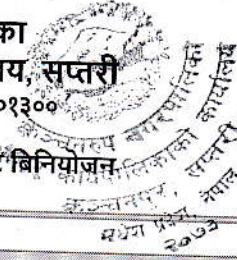 का
य, सप्तरी
०१३००
बिनियोजन
नगरपालिका
कार्यपालिकाको कार्यालय
कञ्चनरूप, सप्तरी
मधेश प्रदेश, नेपाल
२०७३